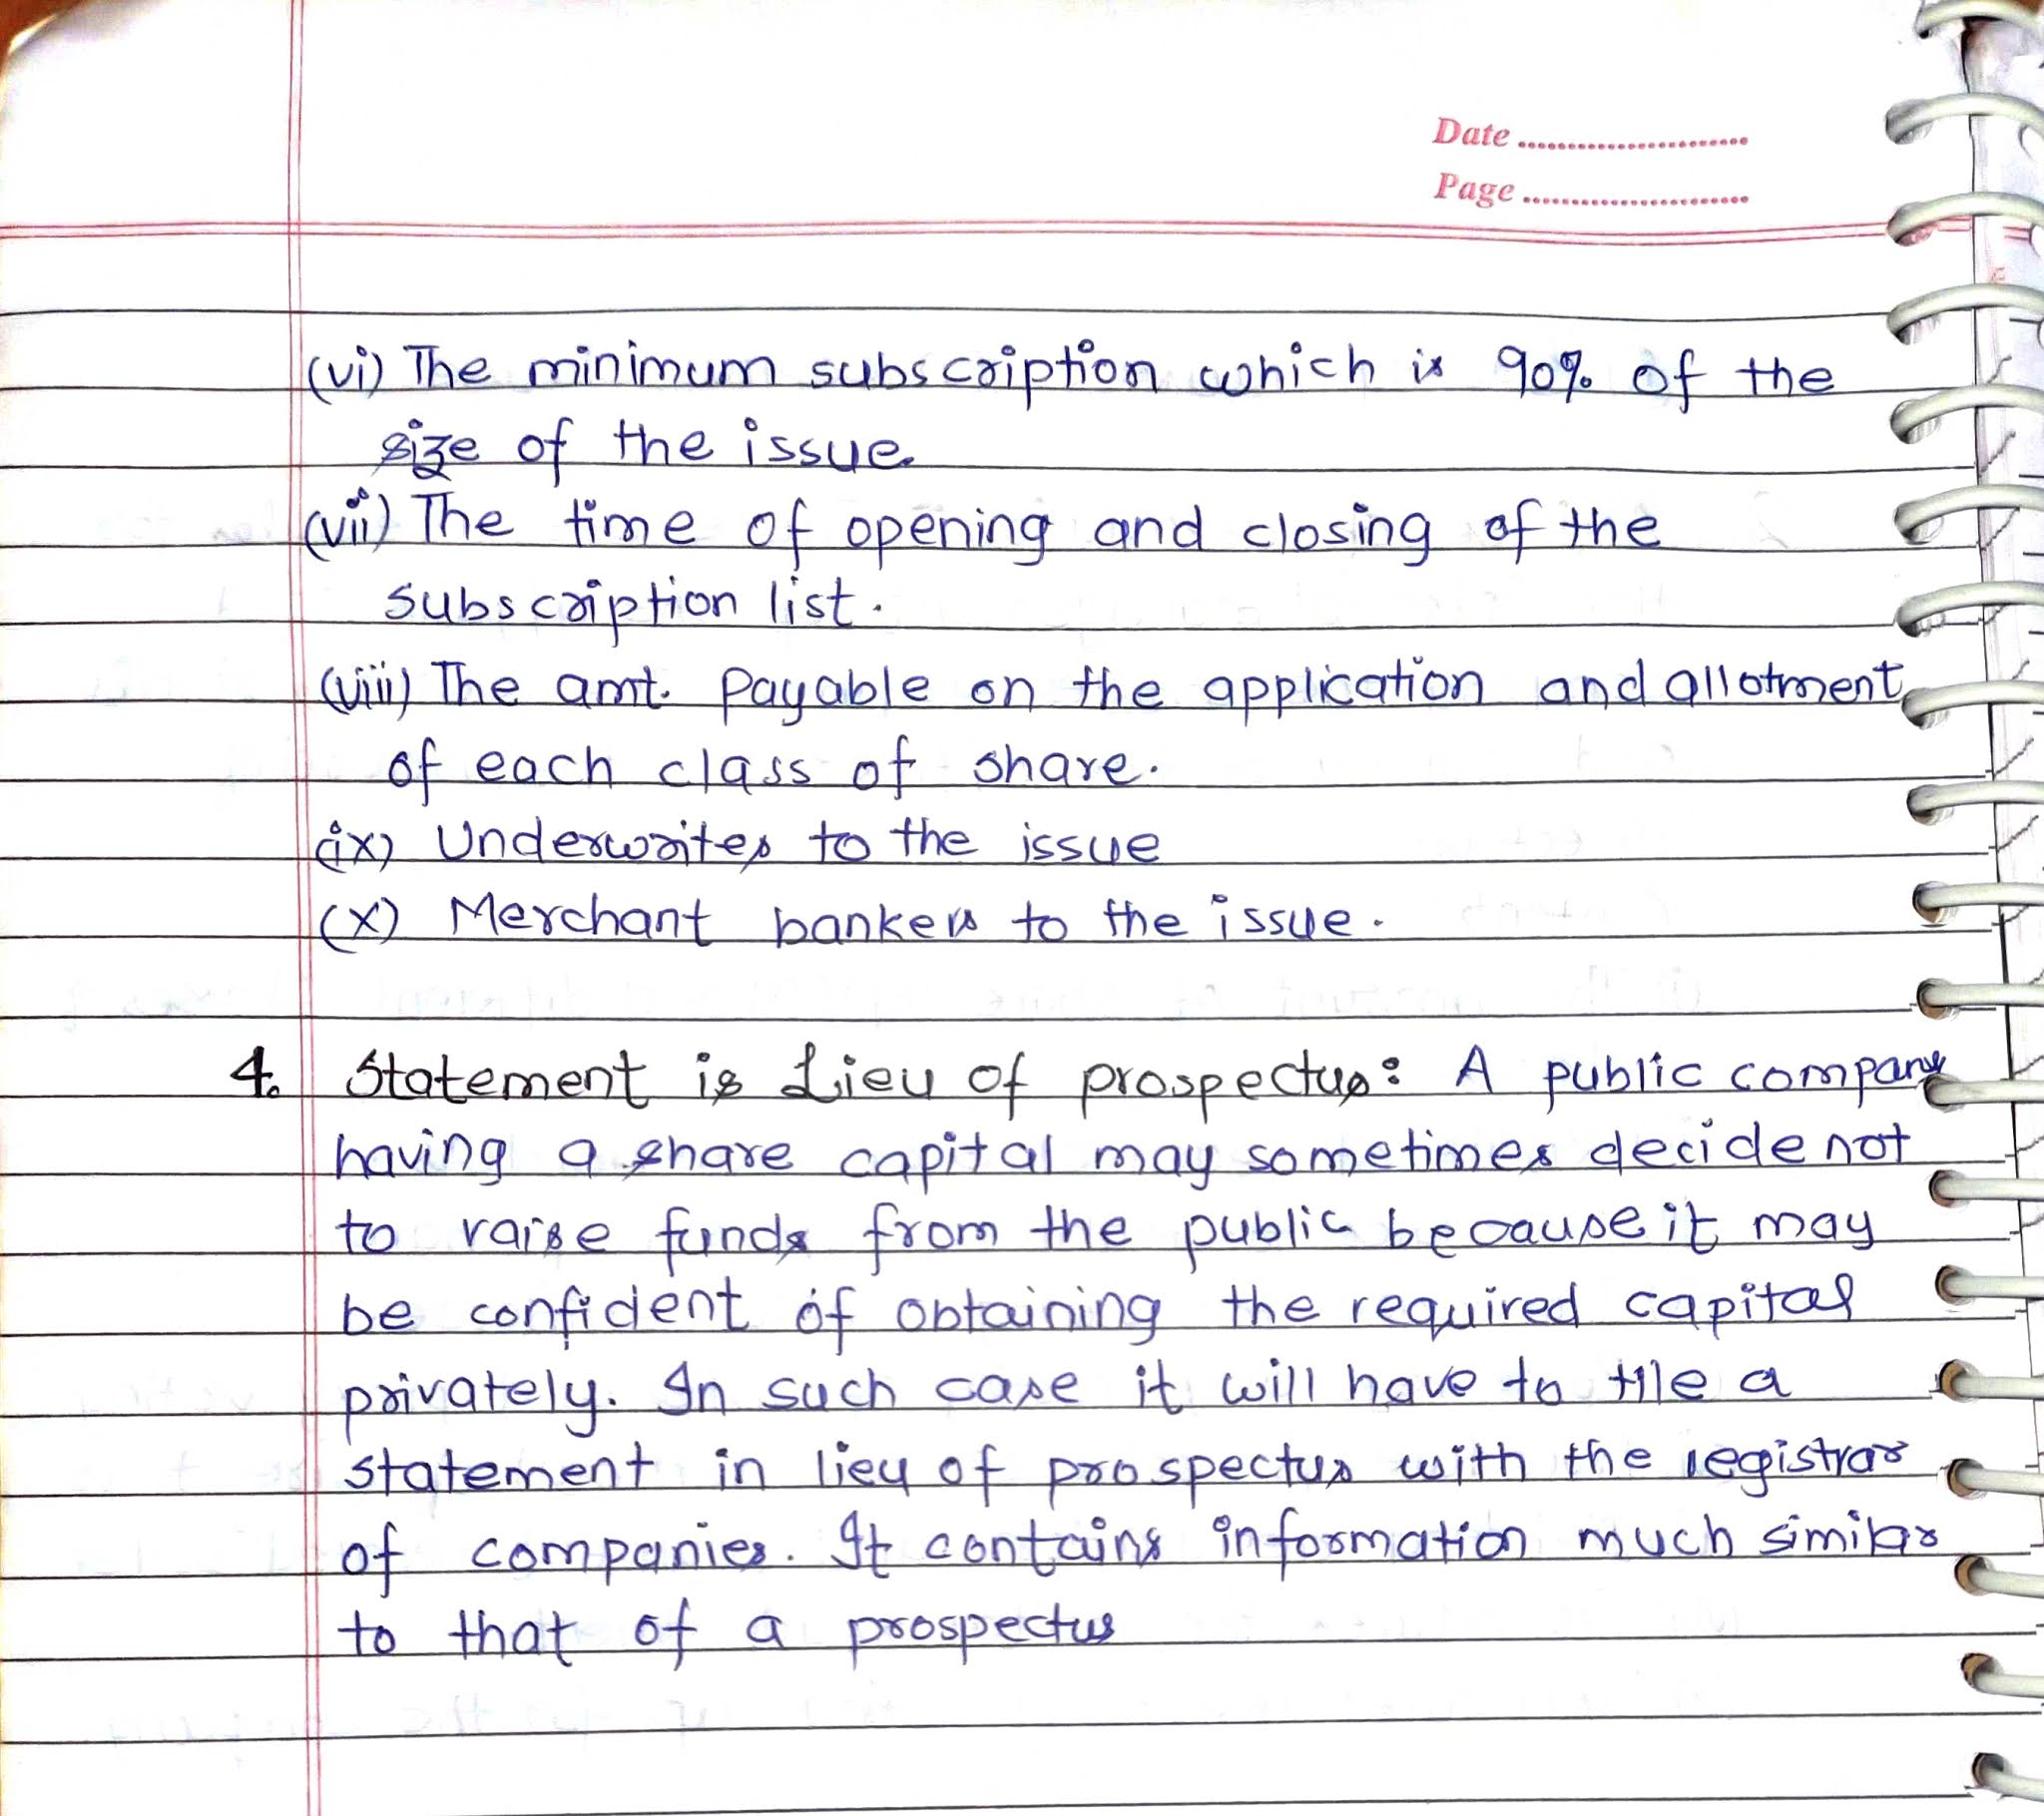 Date ........................
Page ........................
(vi) The minimum subscription which is 90% of the
size of the issue.
(vii) The time of opening and closing of the
subscription list.
(viii) The amt. payable on the application and allotment
of each class of share.
(ix) Underwrites to the issue
(x) Merchant bankers to the issue.
4. Statement is Lieu of prospectus: A public company
having a share capital may sometimes decide not
to raise funds from the public because it may
be confident of obtaining the required capital
privately. In such case it will have to file a
statement in lieu of prospectus with the registrar
of companies. It contains information much similar
to that of a prospectus